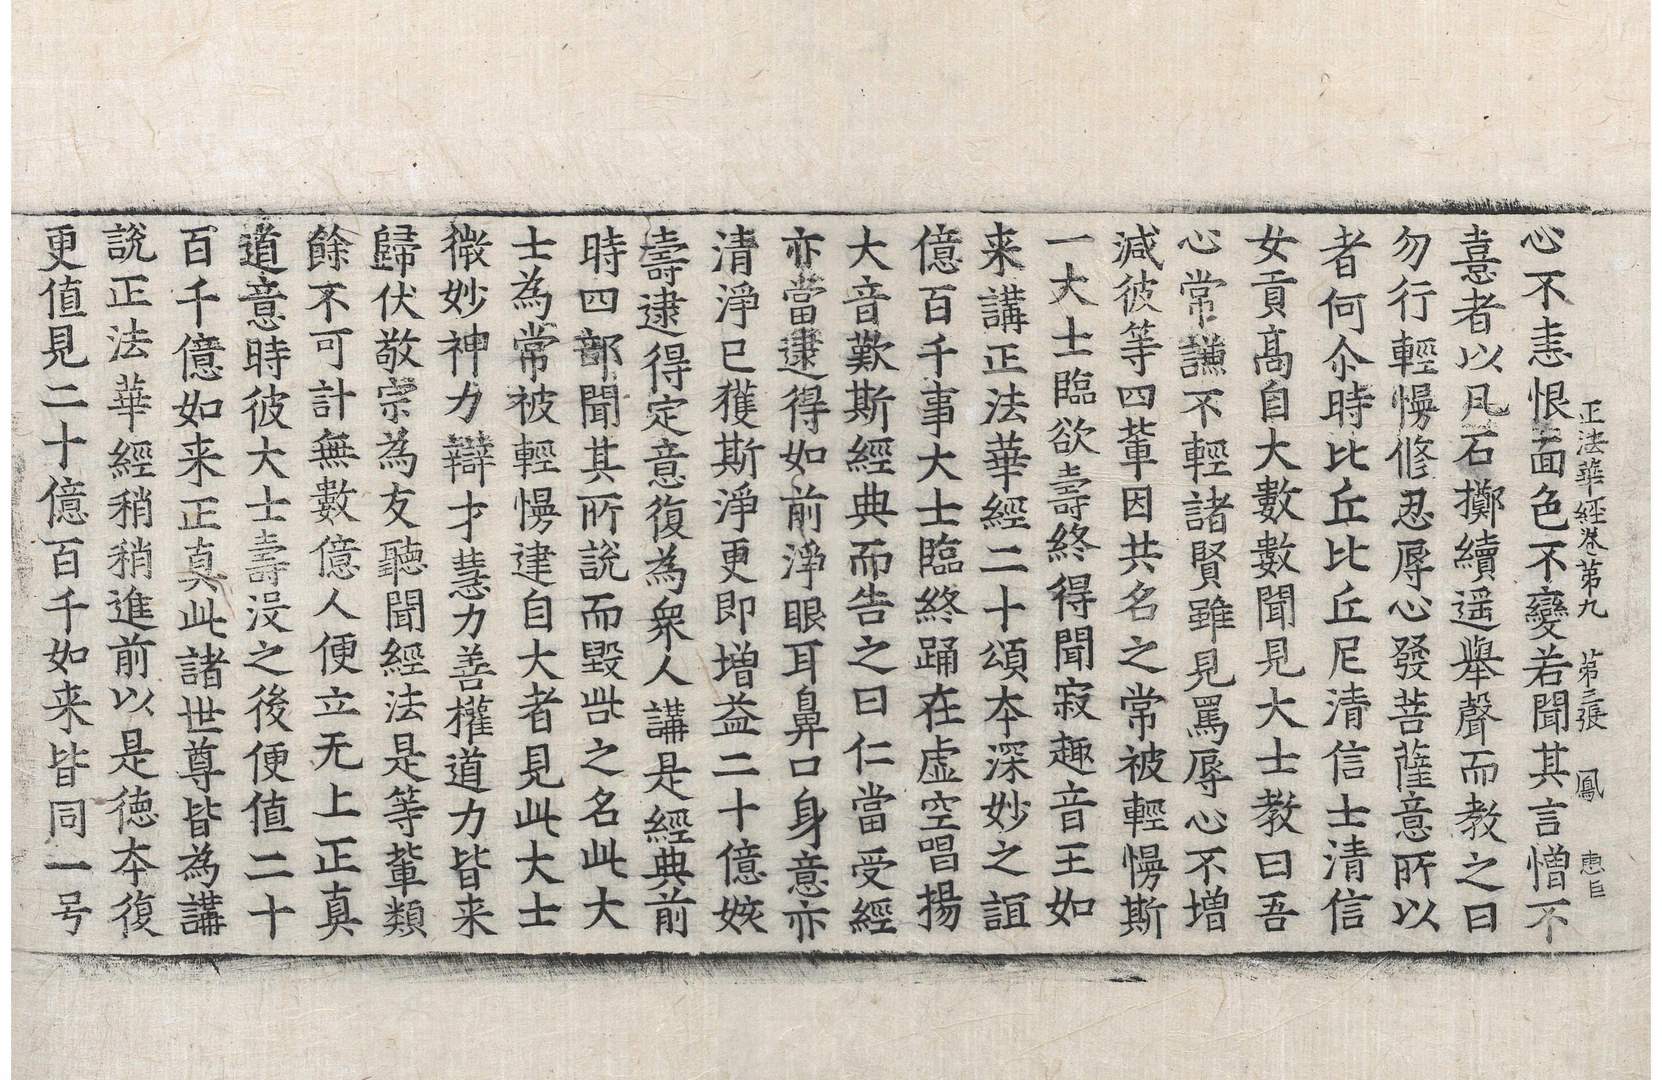 正法華経卷第九 第三張 鳳 惠巨
心不恚恨靣色不變若聞其言憎不
憙者以凡石擲續遥舉聲而教之曰
勿行輕慢修忍辱心發菩薩意所以
者何尒時比丘比丘尼清信士清信
女貢髙自大數數聞見大士教曰吾
心常謙不輕諸賢雖見罵辱心不増
減彼等四輩因共名之常被輕慢斯
一大士臨欲壽終得聞寂趣音王如
来講正法華經二十頌夲深妙之誼
億百千事大士臨終踊在虚空唱揚
大音歎斯經典而告之曰仁當受經
亦當逮得如前淨眼耳鼻口身意亦
清淨已獲斯淨更即増益二十億姟
壽逮得定意復為衆人講是經典前
時四部聞其所說而毀呰之名此大
士為常被輕慢建自大者見此大士
微妙神力辯才慧力善權道力皆来
歸伏敬宗為友聽聞經法是等輩類
餘不可計無數億人便立无上正真
道意時彼大士壽没之後便值二十
百千億如来正真此諸世尊皆為講
說正法華經稍稍進前以是徳夲復
更值見二十億百千如来皆同一号